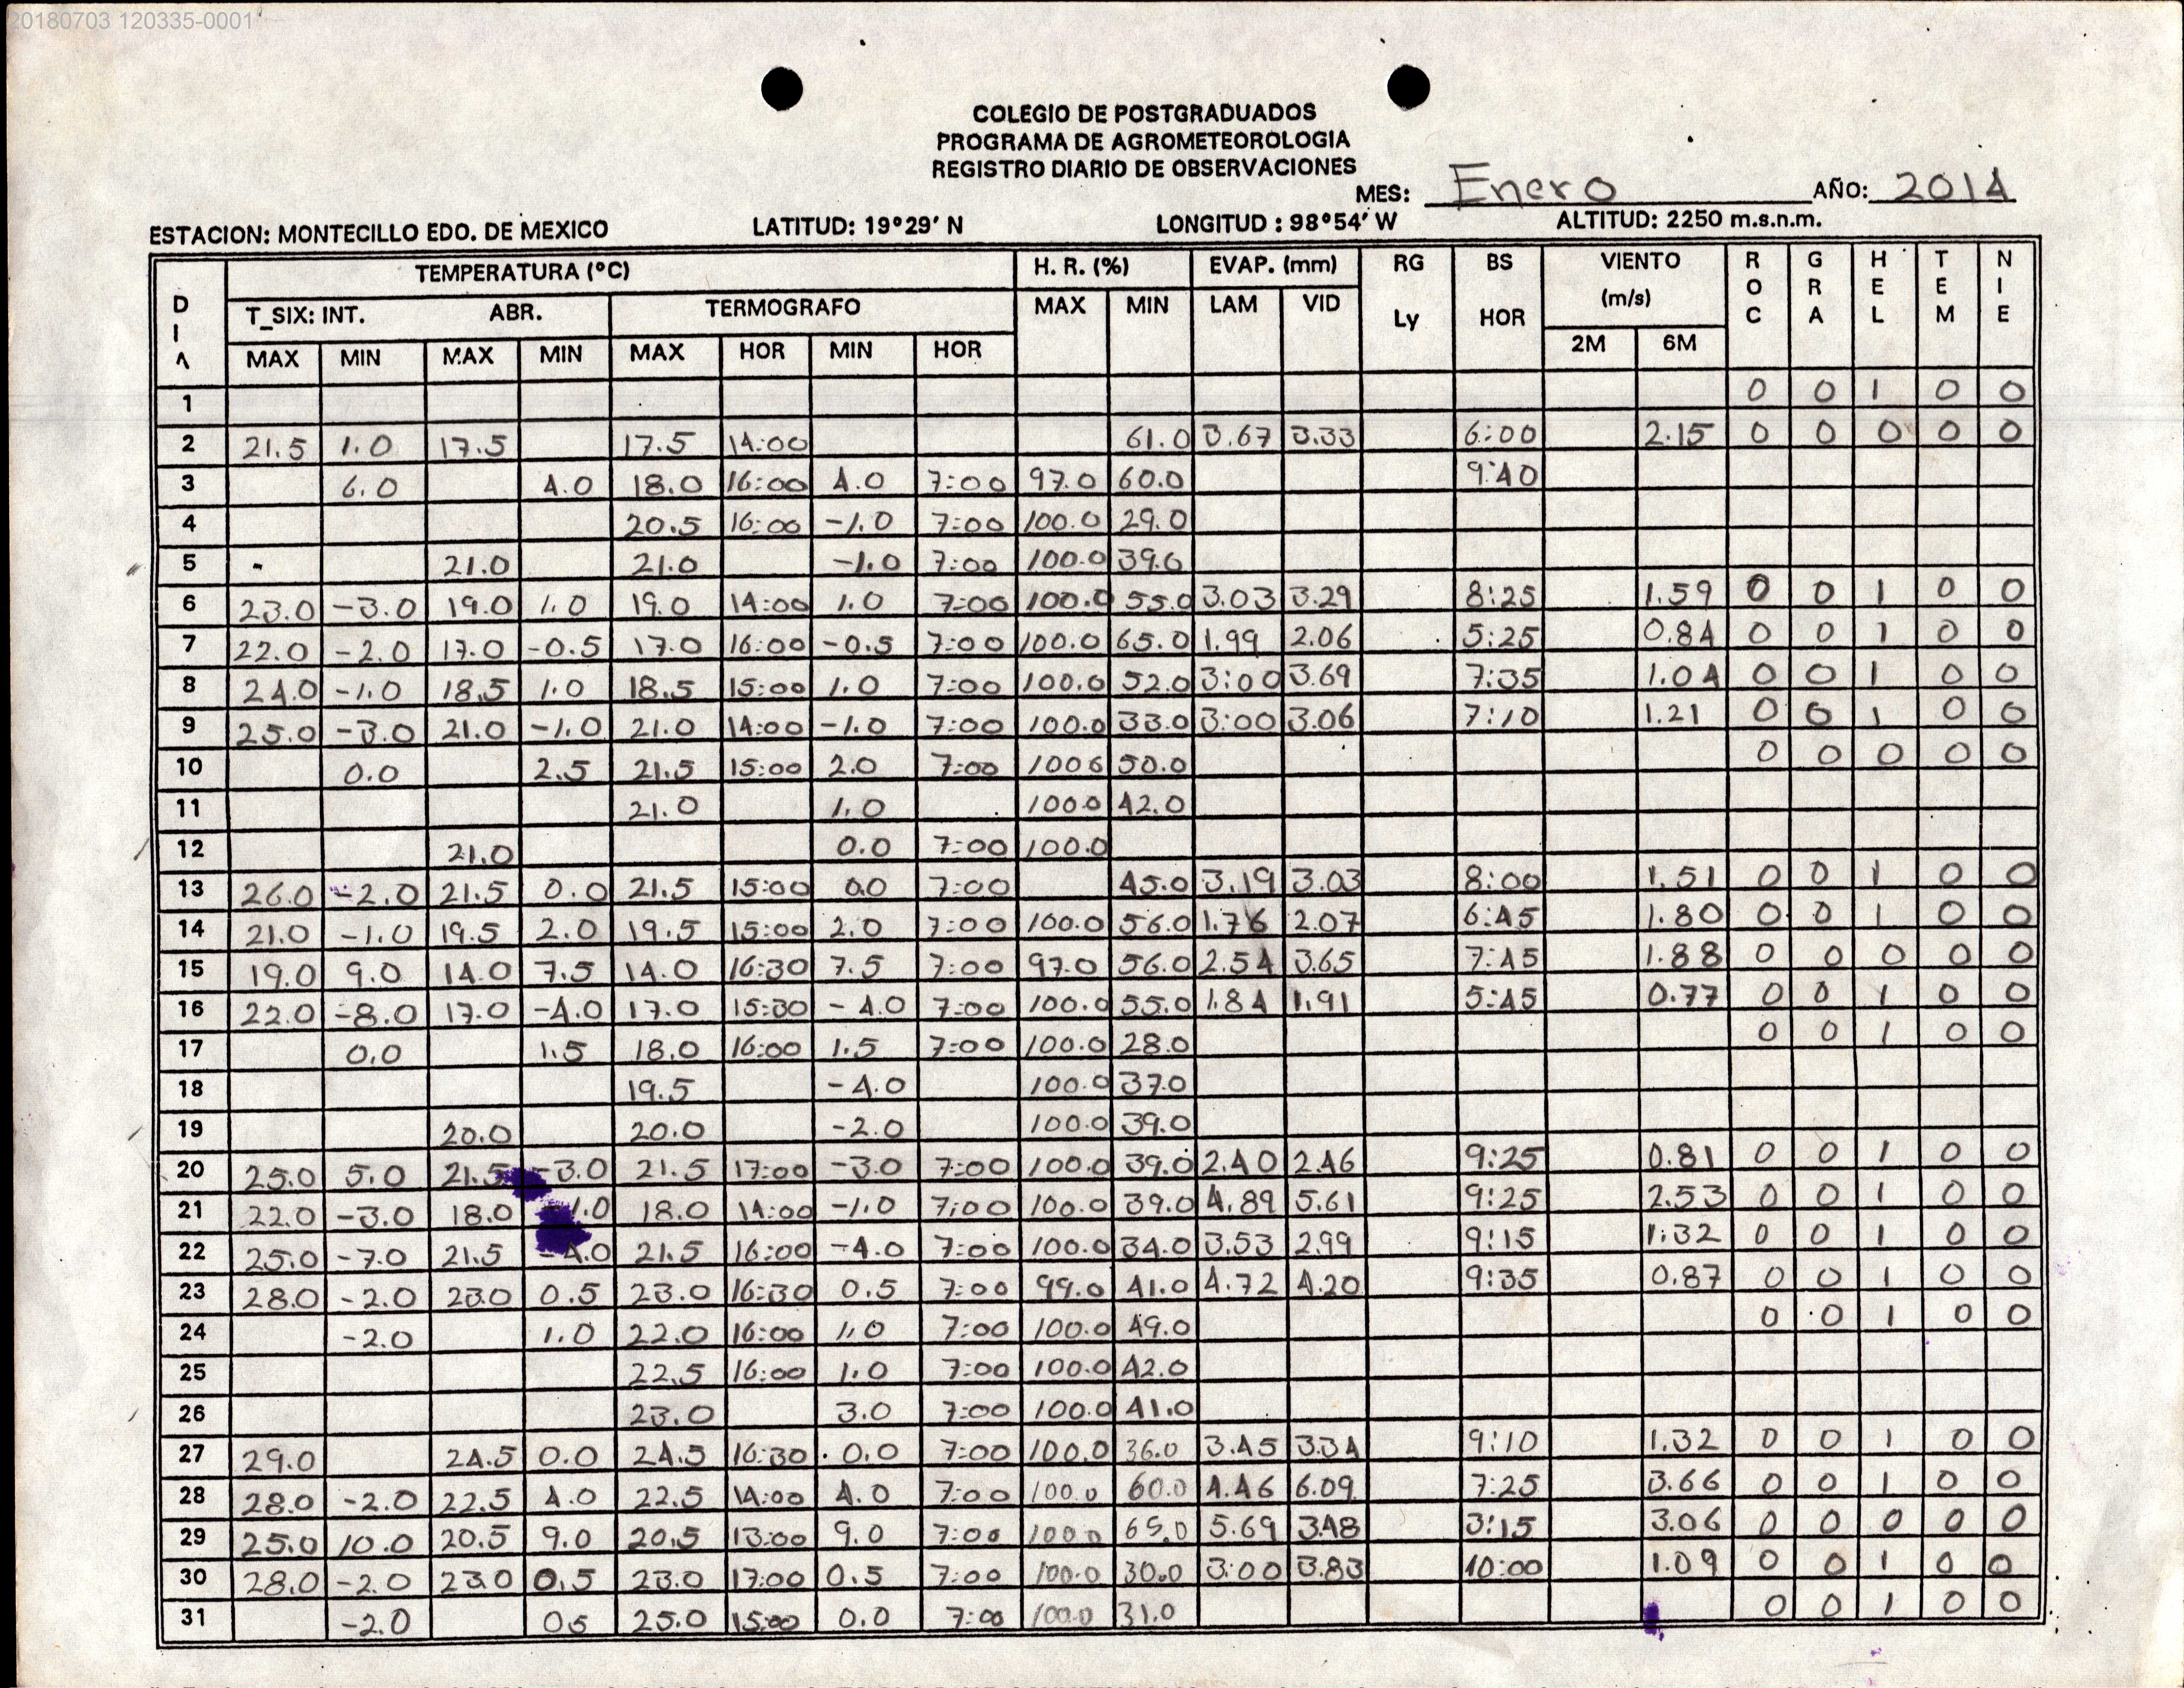 20180703 120335-0001
COLEGIO DE POSTGRADUADOS
PROGRAMA DE AGROMETEOROLOGIA
REGISTRO DIARIO DE OBSERVACIONES
MES: Enero AÑO: 2014
ESTACION: MONTECILLO EDO. DE MEXICO LATITUD: 19°29' N LONGITUD : 98°54' W ALTITUD: 2250 m.s.n.m.
DIA TEMPERATURA (°C) H. R. (%) EVAP. (mm) RG BS VIENTO ROC GRA HEL TEM NIE
T_SIX: INT. ABR. TERMOGRAFO MAX MIN LAM VID Ly HOR (m/s)
MAX MIN MAX MIN MAX HOR MIN HOR 2M 6M
1 0 0 1 0 0
2 21.5 1.0 17.5 17.5 14:00 61.0 3.67 3.33 6:00 2.15 0 0 0 0 0
3 6.0 4.0 18.0 16:00 4.0 7:00 97.0 60.0 9:40
4 20.5 16:00 -1.0 7:00 100.0 29.0
5 - 21.0 21.0 -1.0 7:00 100.0 39.6
6 23.0 -3.0 19.0 1.0 19.0 14:00 1.0 7:00 100.0 55.0 3.03 3.29 8:25 1.59 0 0 1 0 0
7 22.0 -2.0 17.0 -0.5 17.0 16:00 -0.5 7:00 100.0 65.0 1.99 2.06 5:25 0.84 0 0 1 0 0
8 24.0 -1.0 18.5 1.0 18.5 15:00 1.0 7:00 100.0 52.0 3:00 3.69 7:35 1.04 0 0 1 0 0
9 25.0 -3.0 21.0 -1.0 21.0 14:00 -1.0 7:00 100.0 33.0 3:00 3.06 7:10 1.21 0 0 1 0 0
10 0.0 2.5 21.5 15:00 2.0 7:00 100 6 50.0 0 0 0 0 0
11 21.0 1.0 100.0 42.0
12 21.0 0.0 7:00 100.0
13 26.0 -2.0 21.5 0.0 21.5 15:00 0.0 7:00 45.0 3.19 3.03 8:00 1.51 0 0 1 0 0
14 21.0 -1.0 19.5 2.0 19.5 15:00 2.0 7:00 100.0 56.0 1.76 2.07 6:45 1.80 0 0 1 0 0
15 19.0 9.0 14.0 7.5 14.0 16:30 7.5 7:00 97.0 56.0 2.54 3.65 7:45 1.88 0 0 0 0 0
16 22.0 -8.0 17.0 -4.0 17.0 15:30 -4.0 7:00 100.0 55.0 1.84 1.91 5:45 0.77 0 0 1 0 0
17 0.0 1.5 18.0 16:00 1.5 7:00 100.0 28.0 0 0 1 0 0
18 19.5 -4.0 100.0 37.0
19 20.0 20.0 -2.0 100.0 39.0
20 25.0 5.0 21.5 -3.0 21.5 17:00 -3.0 7:00 100.0 39.0 2.40 2.46 9:25 0.81 0 0 1 0 0
21 22.0 -3.0 18.0 -1.0 18.0 14:00 -1.0 7:00 100.0 39.0 4.89 5.61 9:25 2.53 0 0 1 0 0
22 25.0 -7.0 21.5 -4.0 21.5 16:00 -4.0 7:00 100.0 34.0 3.53 2.99 9:15 1:32 0 0 1 0 0
23 28.0 -2.0 23.0 0.5 23.0 16:30 0.5 7:00 99.0 41.0 4.72 4.20 9:35 0.87 0 0 1 0 0
24 -2.0 1.0 22.0 16:00 1.0 7:00 100.0 49.0 0 0 1 0 0
25 22.5 16:00 1.0 7:00 100.0 42.0
26 23.0 3.0 7:00 100.0 41.0
27 29.0 24.5 0.0 24.5 16:30 0.0 7:00 100.0 36.0 3.45 3.34 9:10 1.32 0 0 1 0 0
28 28.0 -2.0 22.5 4.0 22.5 14:00 4.0 7:00 100.0 60.0 4.46 6.09 7:25 3.66 0 0 1 0 0
29 25.0 10.0 20.5 9.0 20.5 13:00 9.0 7:00 100.0 65.0 5.69 3.48 3:15 3.06 0 0 0 0 0
30 28.0 -2.0 23.0 0.5 23.0 17:00 0.5 7:00 100.0 30.0 3:00 3.83 10:00 1.09 0 0 1 0 0
31 -2.0 0.5 25.0 15:00 0.0 7:00 100.0 31.0 0 0 1 0 0